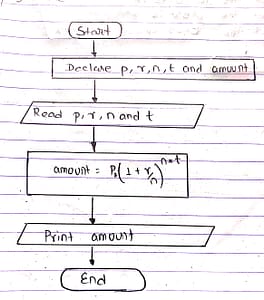 Start
Declare p, r, n, t and amount
Read p, r, n and t
amount = P(1 + r/n)^n*t
Print amount
End